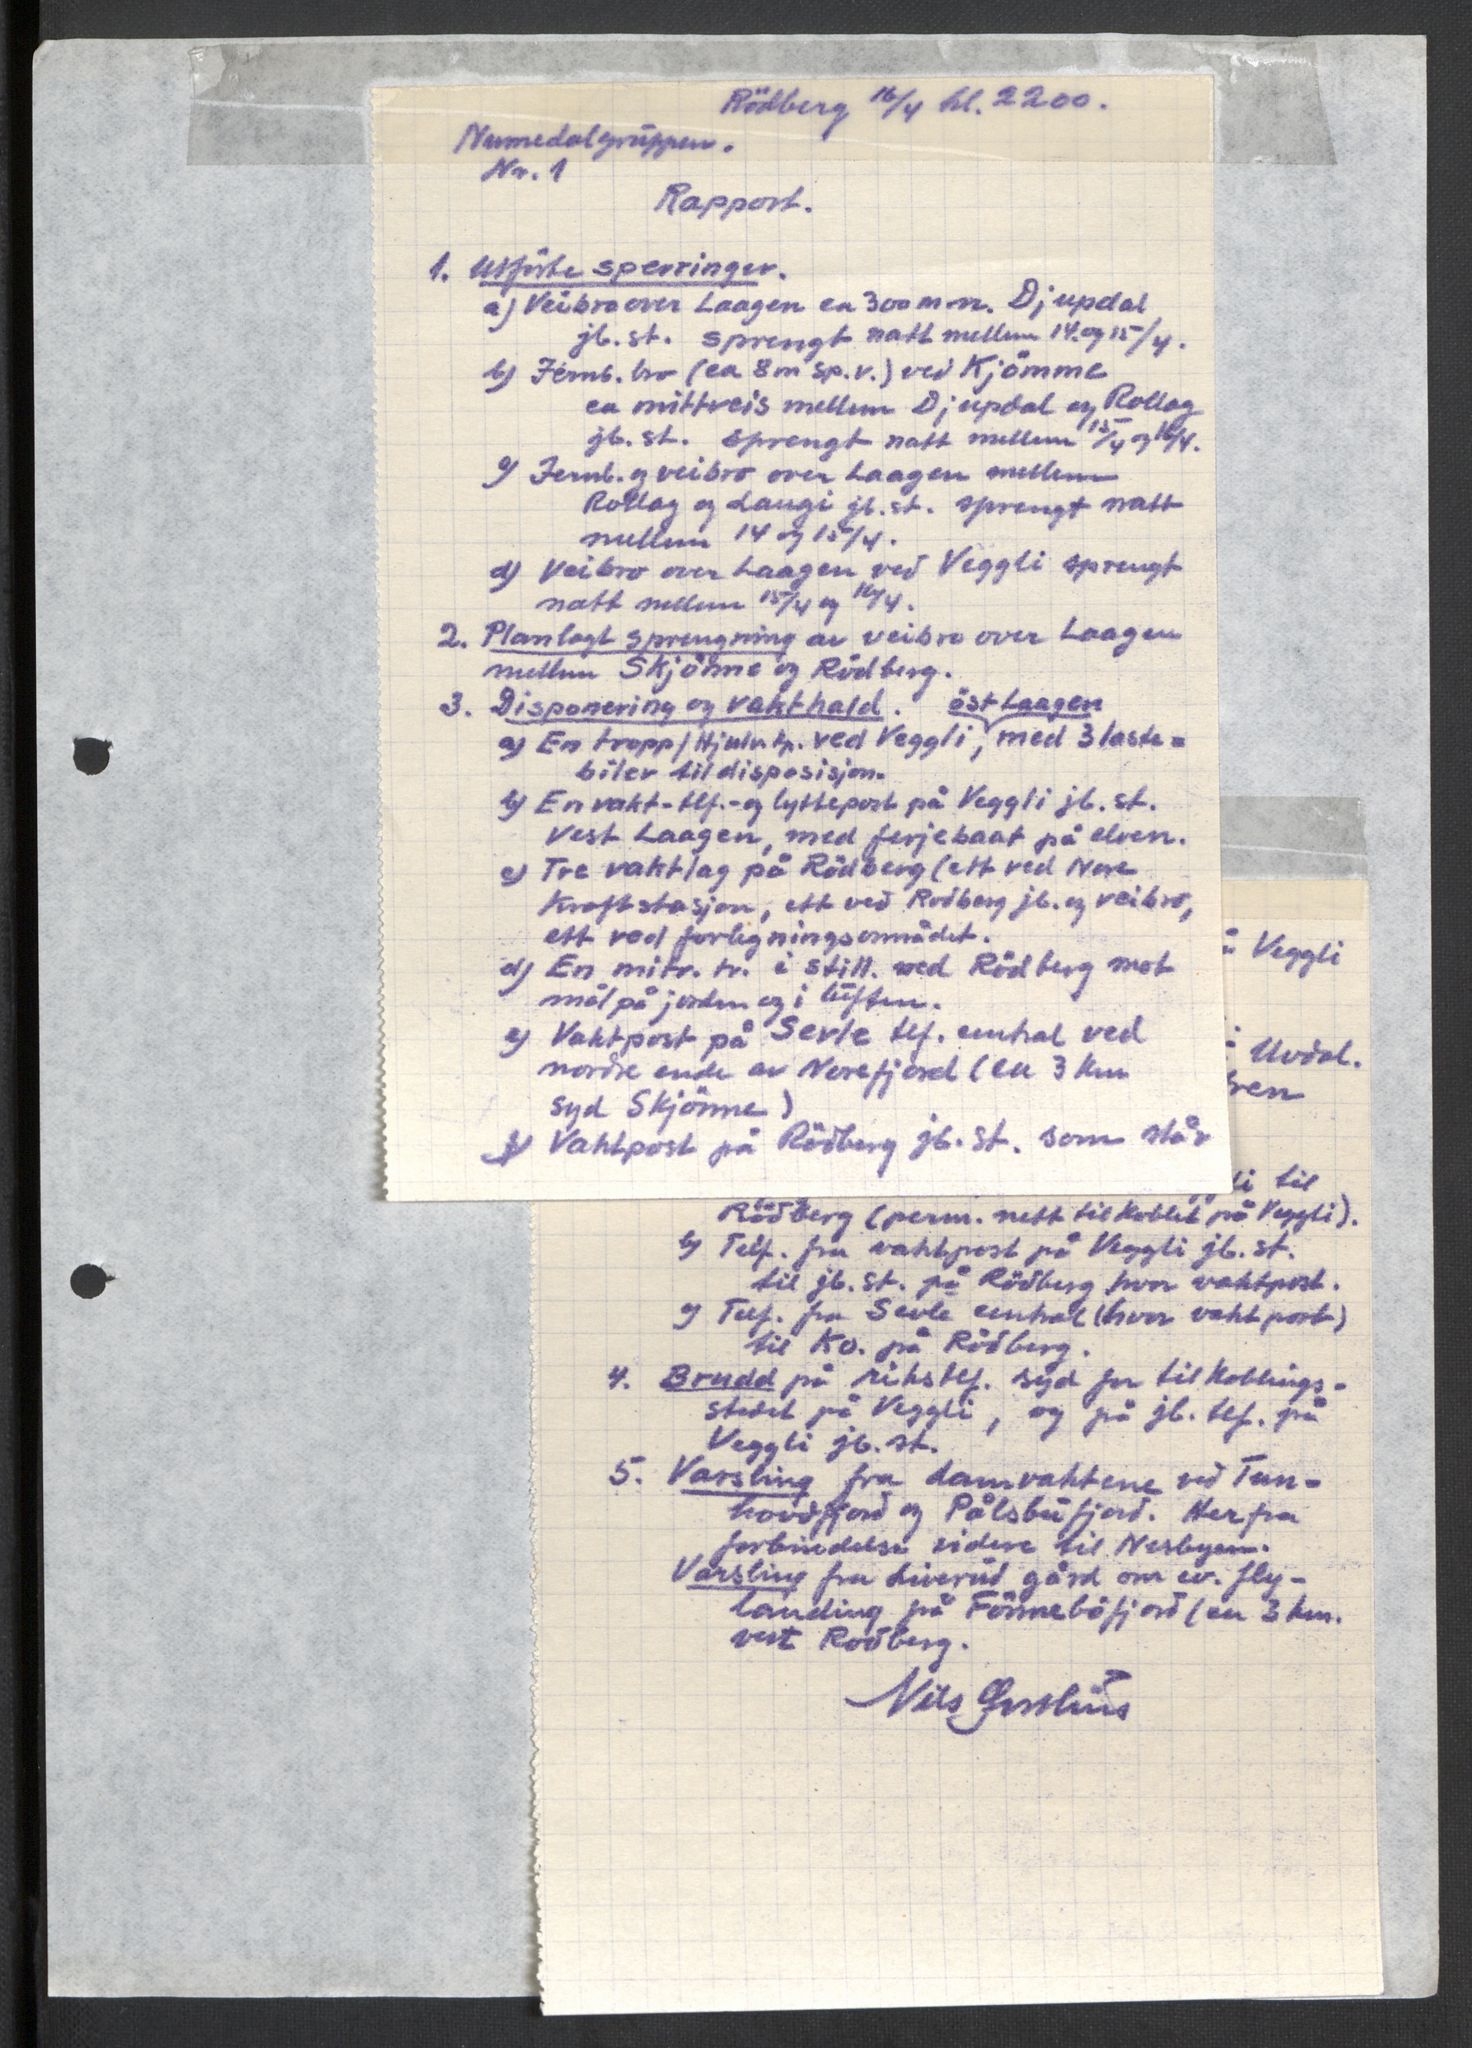 Rödberg 16/4 kl. 2200.
Numedalgruppen.
Nr. 1
Rapport.
1. Utförte sperringer.
a) Veibro over Laagen ca 300 m n. Djupdal
jb.st. sprengt natt mellem 14. og 15/4.
b) Jernb. bro (ca 8 m sp.v.) ved Kjömme
ca mittveis mellem Djupdal og Rollag
jb.st. sprengt natt mellem 15/4 og 16/4.
c) Jernb. og veibro over Laagen mellem
Rollag og Laugi jb.st. sprengt natt
mellem 14 og 15/4.
d) Veibro over Laagen ved Veggli sprengt
natt mellem 15/4 og 16/4.
2. Planlagt sprengning av veibro over Laagen
mellem Skjönne og Rödberg.
3. Disponering og vakthald. öst Laagen
a) En tropp/Hjulr.kp. ved Veggli, med 3 laste-
biler til disposisjon.
b) En vakt- tlf.- og lyttepost på Veggli jb.st.
vest Laagen, med ferjebaat på elven.
c) Tre vaktlag på Rödberg (ett ved Nore
Kraftstasjon, ett ved Rodberg jb. og veibro,
ett ved forlegningsområdet.
d) En mitr. tr. i still. ved Rödberg mot
mål på jorden og i luften.
e) Vaktpost på Sevle tlf. central ved
nordre ende av Norefjord (ca 3 km
syd Skjönne)
f) Vaktpost på Rödberg jb.st. som står
Veggli
Uvdal.
til
Rödberg (perm. nett tilkoblet på Veggli).
b) Telf. fra vaktpost på Veggli jb.st.
til jb.st. på Rödberg hvor vaktpost.
c) Telf. fra Sevle central (hvor vaktpost)
til Ko. på Rödberg.
4. Brudd på rikstlf. syd for tilkoblings-
stedet på Veggli, og på jb. tlf. på
Veggli jb.st.
5. Varsling fra damvaktene ved Tun-
hovdfjord og Pålsbufjord. Herfra
forbindelse videre til Nesbyen.
Varsling fra Liverud gård om ev. fly-
landing på Fönneböfjord (ca 3 km.
vest Rodberg.
Nils